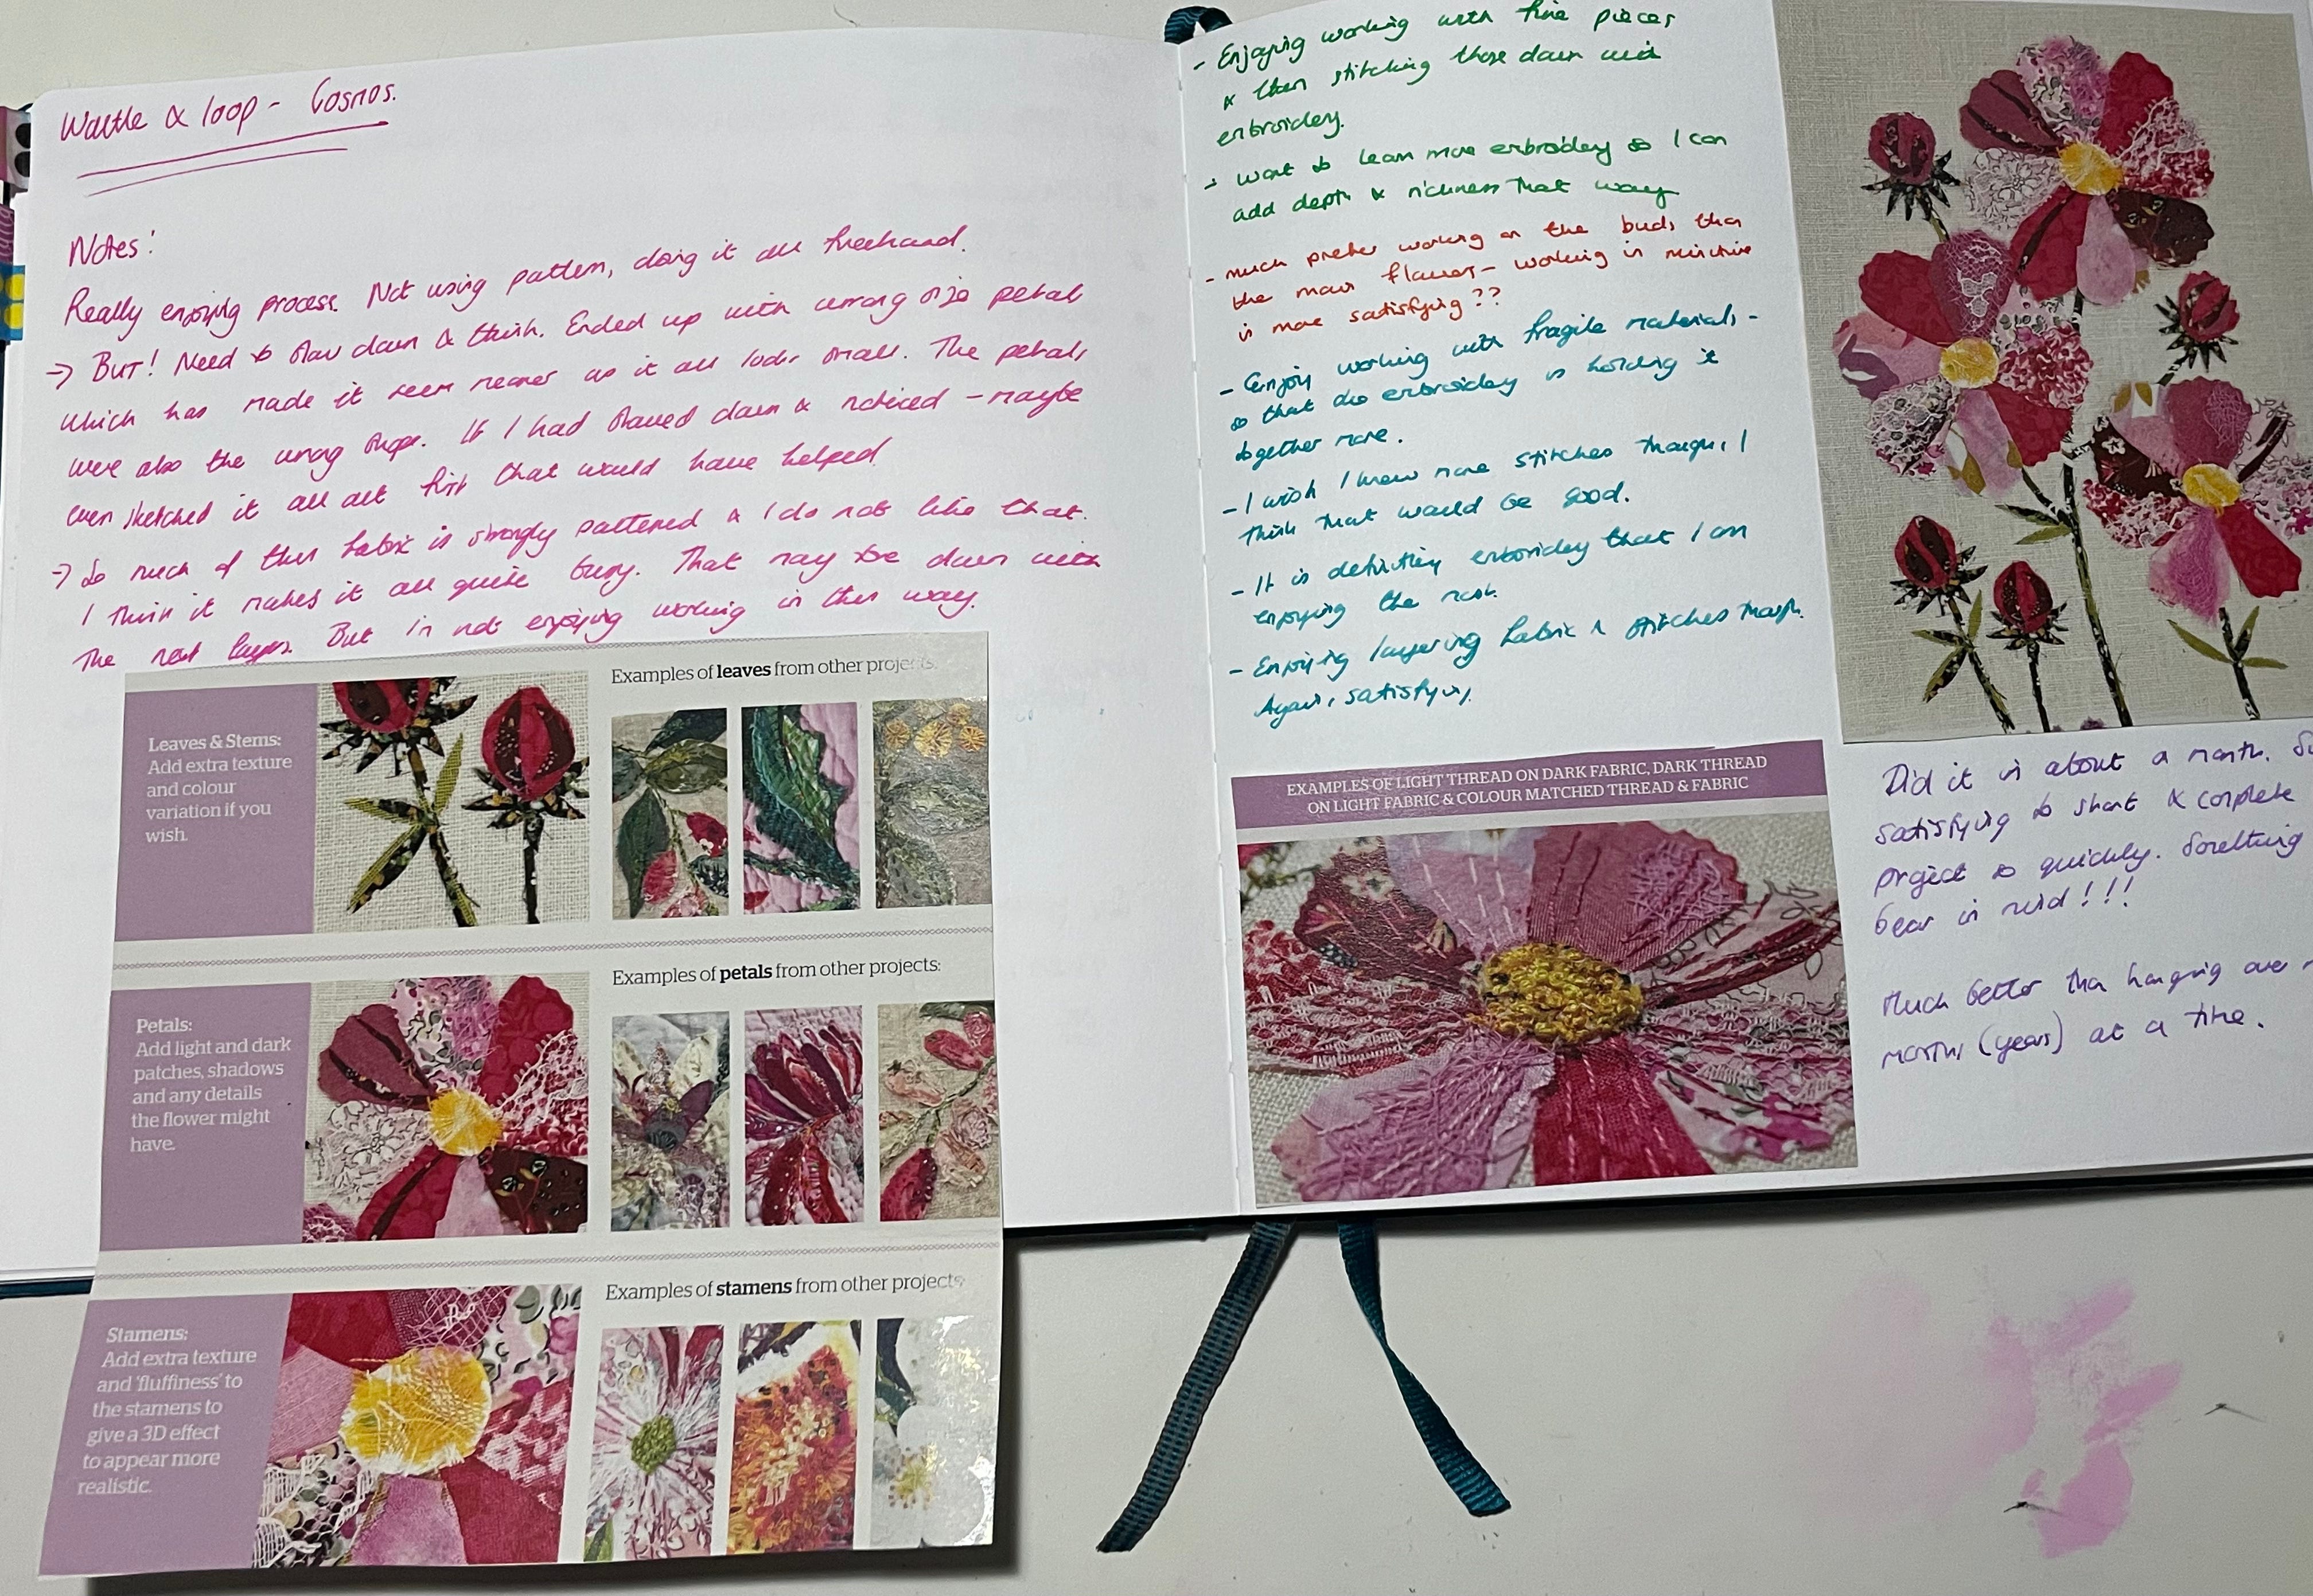 Wattle & loop - Cosmos.
Notes:
Really enjoying process. Not using pattern, doing it all freehand.
→ BUT! Need to slow down & think. Ended up with wrong size petals
which has made it seem meaner as it all looks small. The petals
were also the wrong shape. If I had slowed down & noticed - maybe
even sketched it all out first that would have helped.
→ So much of this fabric is strongly patterned & I do not like that.
I think it makes it all quite busy. That may be down with
the next layer. But I'm not enjoying working in this way.
Examples of leaves from other projects:
Leaves & Stems:
Add extra texture
and colour
variation if you
wish.
Examples of petals from other projects:
Petals:
Add light and dark
patches, shadows
and any details
the flower might
have.
Examples of stamens from other projects
Stamens:
Add extra texture
and 'fluffiness' to
the stamens to
give a 3D effect
to appear more
realistic.
- Enjoying working with fine pieces
& then stitching those down with
embroidery.
- Want to learn more embroidery so I can
add depth & richness that way
- Much prefer working on the buds than
the main flower - working in miniture
is more satisfying??
- Enjoy working with fragile materials -
so that the embroidery is holding it
together more.
- I wish I knew more stitches though, I
think that would be good.
- It is definitley embroidey that I am
enjoying the most.
- Enjoying layering fabric & stitches though.
Again, satisfying.
EXAMPLES OF LIGHT THREAD ON DARK FABRIC, DARK THREAD
ON LIGHT FABRIC & COLOUR MATCHED THREAD & FABRIC
Did it in about a month.
satisfying to start & complete
project so quickly. Something
bear in mind!!!
Much better than hanging over
months (years) at a time.